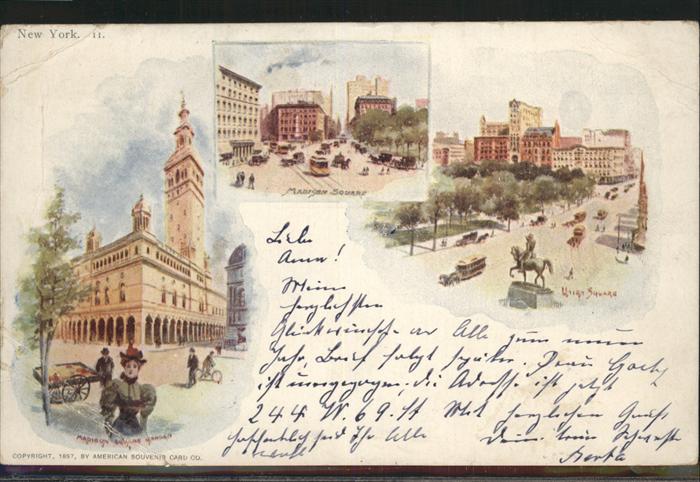 New York. 11.
Madison Square
Union Square
Madison Square Garden
Liebe
Anna!
Meine
herzlichsten
Glückwünsche an Alle zum neuen
Jahr, Brief folgt später. Frau
ist umgezogen, die Adresse ist jetzt
244 W. 69. St Mit herzlichem Gruß
hoffentlich seid Ihr Alle
Deine treue Schwester
Berta
COPYRIGHT, 1897, BY AMERICAN SOUVENIR CARD CO.